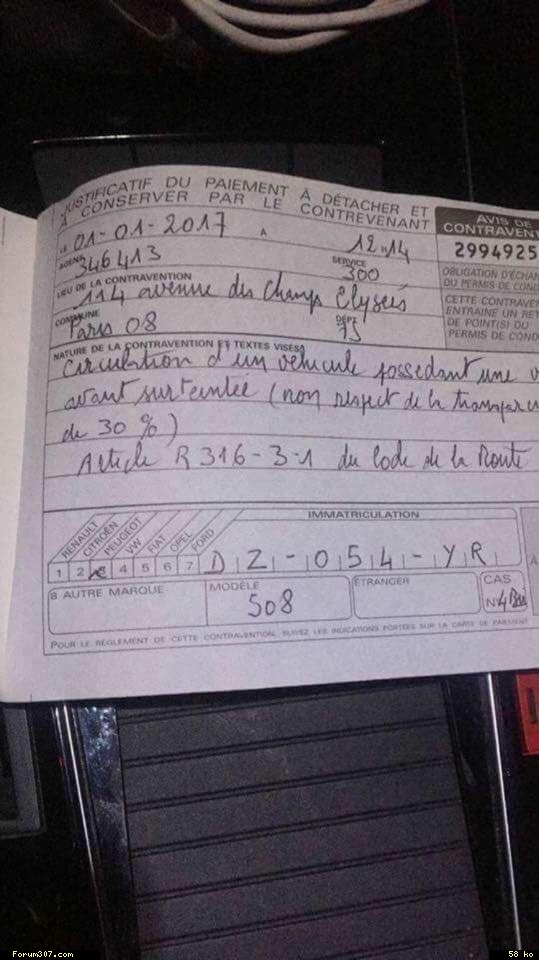 JUSTIFICATIF DU PAIEMENT À DÉTACHER ET
À CONSERVER PAR LE CONTREVENANT
AVIS DE
CONTRAVENT
LE 01-01-2017 A 12H14
2994925
AGENT 346413 SERVICE 300
OBLIGATION D'ÉCHAN
DU PERMIS DE COND
LIEU DE LA CONTRAVENTION
114 avenue des Champs Elysées
CETTE CONTRAVEN
ENTRAINE UN RET
DE POINT(S) DU
PERMIS DE COND
COMMUNE Paris 08 DÉPT 75
NATURE DE LA CONTRAVENTION ET TEXTES VISÉS
Circulation d'un véhicule possedant une v
avant surteintée (non respect de la transparen
de 30 %)
Article R316-3-1 du Code de la Route
RENAULT
CITROËN
PEUGEOT
VW
FIAT
OPEL
FORD
IMMATRICULATION
1 2 4 5 6 7 DZ-054-YR
8 AUTRE MARQUE MODÈLE 508 ÉTRANGER CAS N° 4
A
POUR LE RÈGLEMENT DE CETTE CONTRAVENTION, SUIVEZ LES INDICATIONS PORTÉES SUR LA CARTE DE PAIEMENT
Forum307.com
58 ko